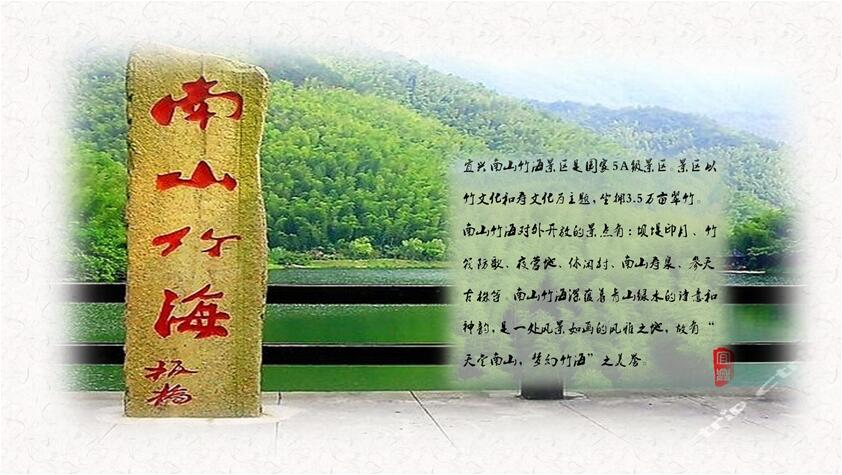 南
山
竹
海
板
桥
宜兴南山竹海景区是国家5A级景区。景区以
竹文化和寿文化为主题，坐拥3.5万亩翠竹。
南山竹海对外开放的景点有：坝堤印月、竹
筏、夜营地、休闲村、南山寿泉、参天
古株等。南山竹海深蕴着青山绿水的诗意和
神韵，是一处风景如画的风雅之地，故有“
天堂南山，梦幻竹海”之美誉。